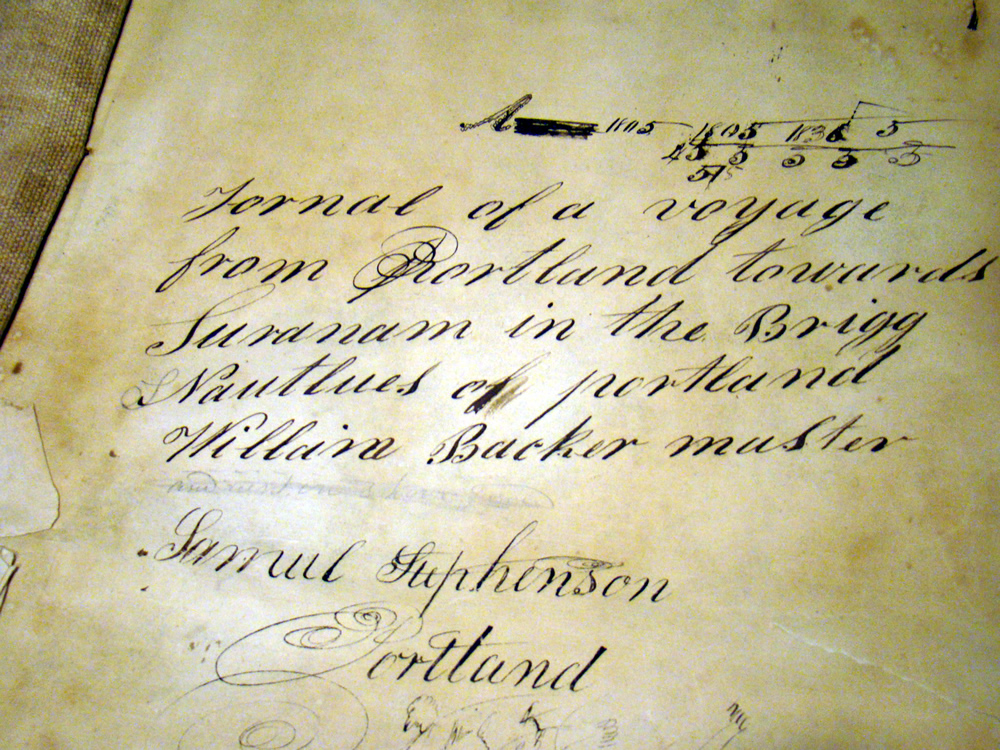 A 1805 1805 1836 5
45 5 5 5 5
Jornal of a voyage
from Portland towards
Suranam in the Brigg
Nautlues of portland
Williain Backer master
Samuel Stephenson
Portland